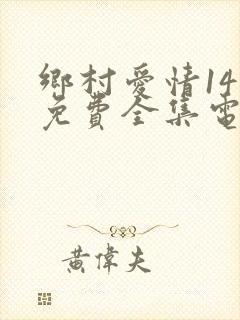 鄉村愛情14
免費全集電
黃偉夫